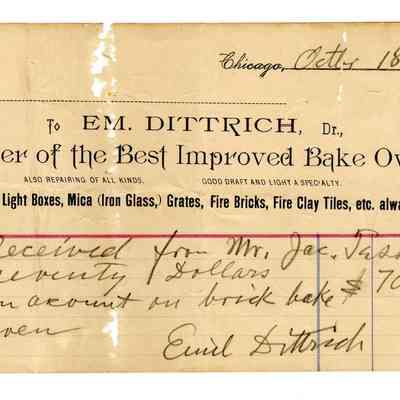 Chicago, Octbr 18
To EM. DITTRICH, Dr.,
er of the Best Improved Bake Ov
ALSO REPAIRING OF ALL KINDS. GOOD DRAFT AND LIGHT A SPECALTY.
Light Boxes, Mica (Iron Glass,) Grates, Fire Bricks, Fire Clay Tiles, etc. alwa
Received from Mr. Jac.
Seventy Dollars $ 70
on acount on brick bake
oven
Emil Dittrich